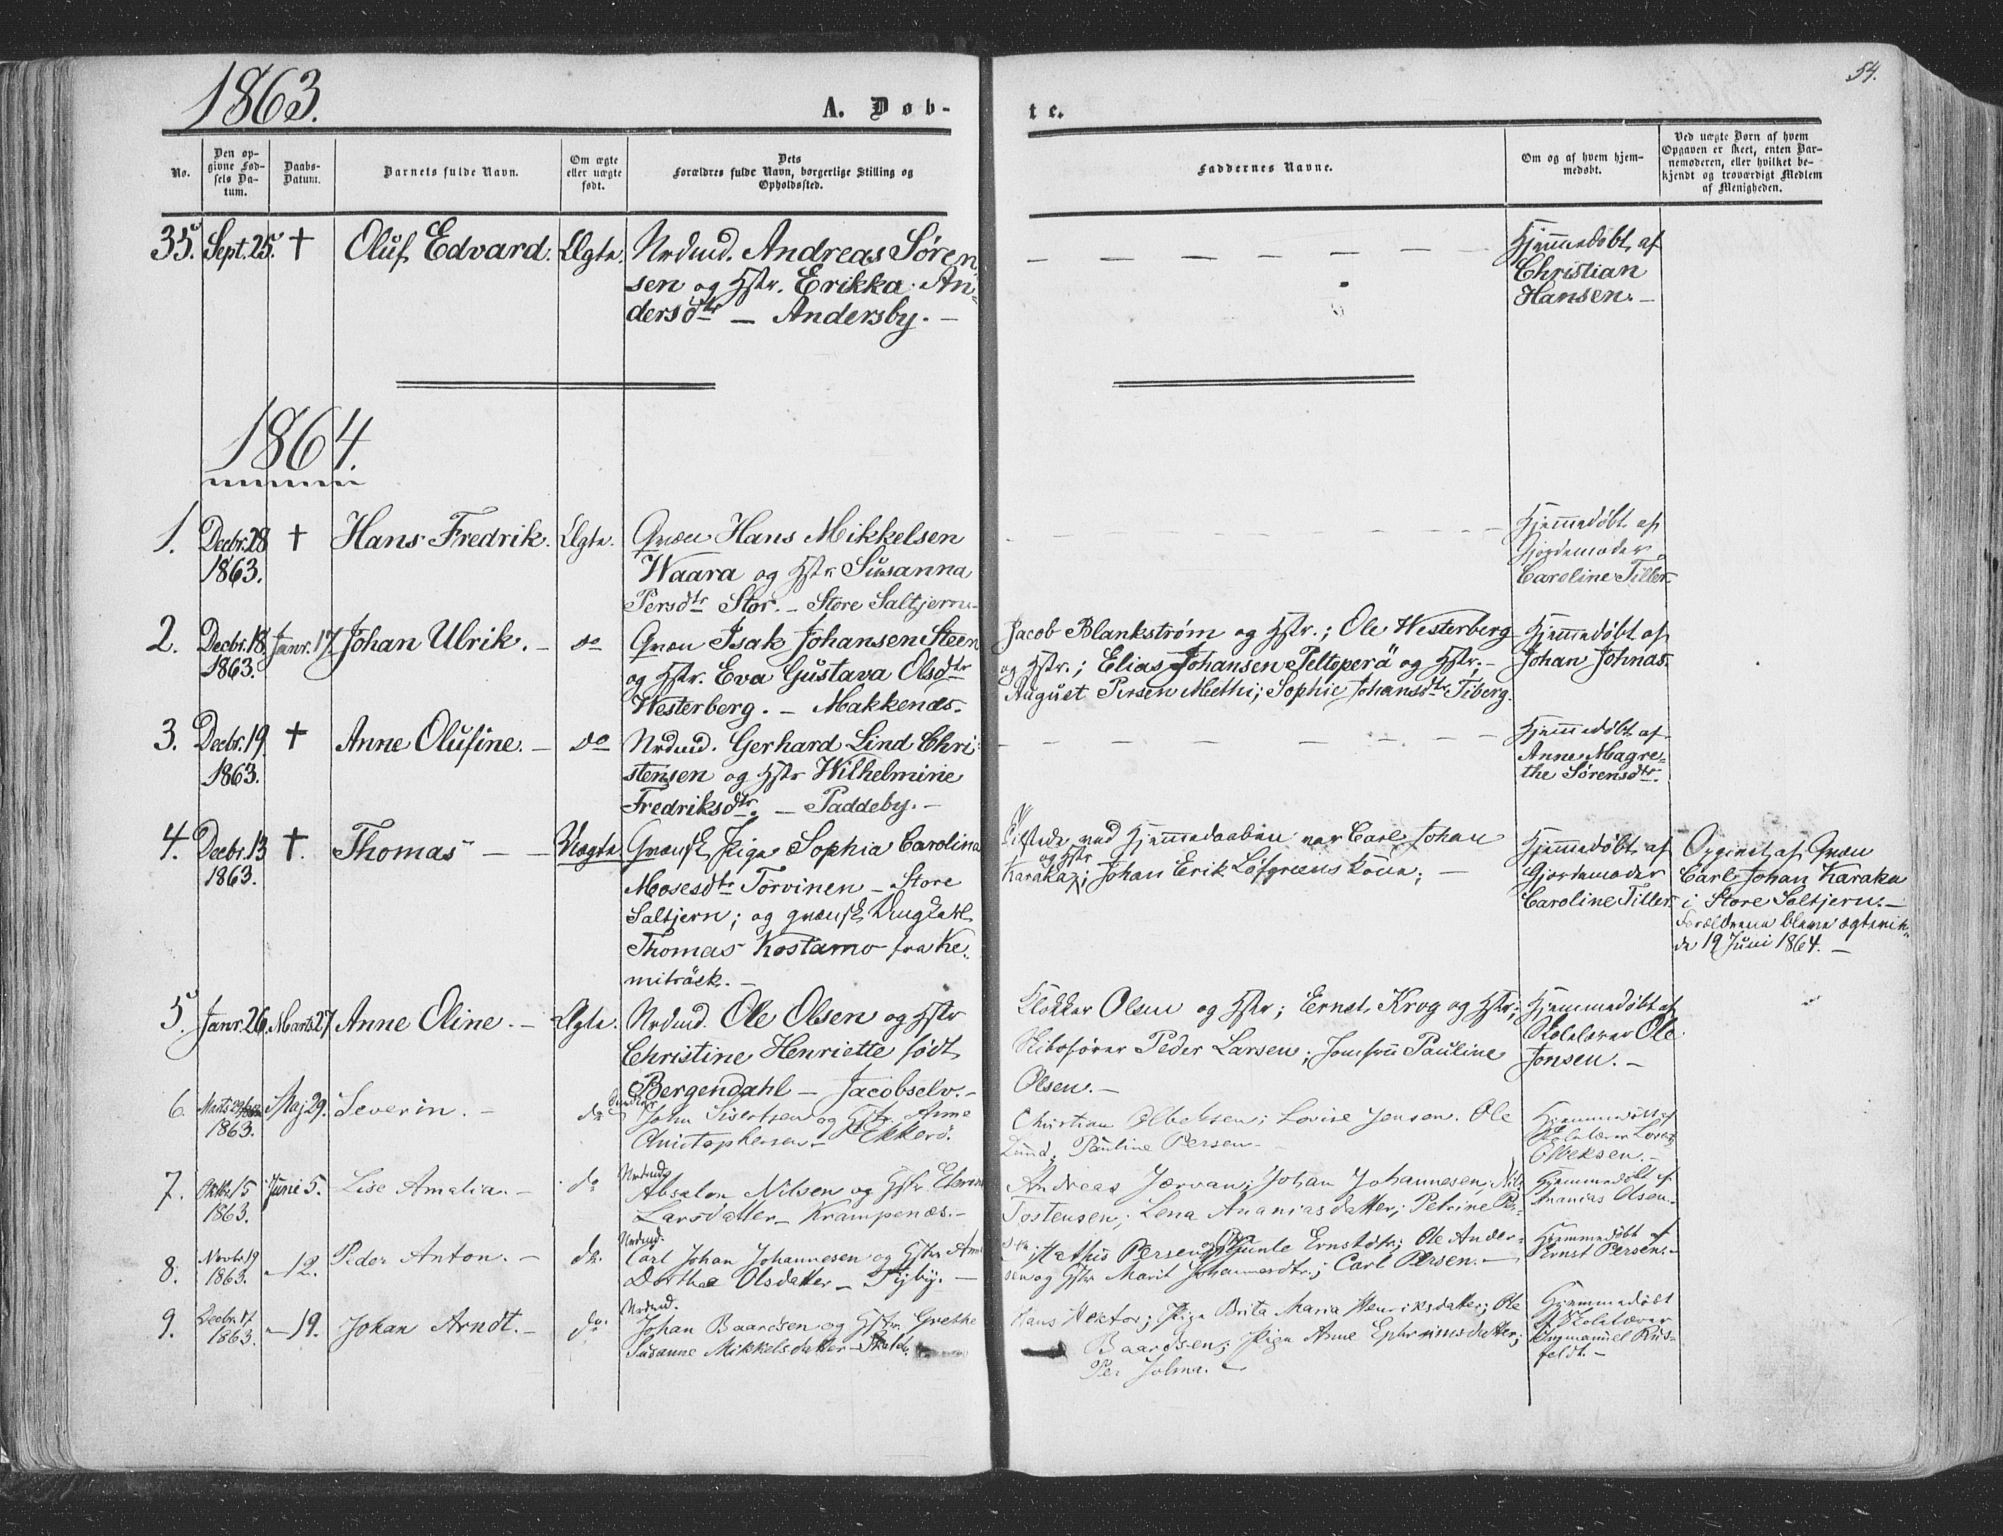 1863.
A. Døb-
te.
54.
No.
Den op-
givne Fød-
sels Da-
tum.
Daabs-
Datum.
Barnets fulde Navn.
Om ægte
eller uægte
født.
Dets
Forældres fulde Navn, borgerlige Stilling og
Opholdssted.
Faddernes Navne.
Om og af hvem hjem-
medøbt.
Ved uægte Børn af hvem
Opgaven er skeet, enten Bar-
nemoderen, eller hvilket be-
kjendt og troværdigt Medlem
af Menigheden.
35. Sept. 25. † Oluf Edvard. Ægte. Nrdmd. Andreas Søren-
sen og Hstr. Erikka An-
dersdtr — Andersby. —
Hjemmedøbt af
Christian
Hansen. —
1864.
1. Decbr. 28 † Hans Fredrik. Ægte. Qvæn Hans Mikkelsen
1863. Waara og Hstr Susanna
Persdtr Stor. — Store Saltjern —
Hjemmedøbt af
Gjordemoder
Caroline Tiller.
2. Decbr. 18. Janr. 17. Johan Ulrik. — do Qvæn Isak Johansen Steen
1863. og Hstr. Eva Gustava Olsdtr
Westerberg. — Makkenæs.
Jacob Blankstrøm og Hstr.; Ole Westerberg
og Hstr.; Elias Johansen Peltoperä og Hstr. —
August Persen Miethi; Sophie Johansdtr Tiberg.
Hjemmedøbt af
Johan Johnas.
3. Decbr. 19 † Anne Olufine. — do Nrdmd. Gerhard Lind Chri-
1863. stensen og Hstr Wilhelmine
Fredriksdtr. — Paddeby. —
Hjemmedøbt af
Anne Magre-
the Sørensdtr.
4. Decbr. 13 †. Thomas — — Uægte Qvænsk Pige Sophia Carolina
1863. Mosesdtr Torvinen — Store
Saltjern; og qvænsk Ungkarl
Thomas Kostamo fra Ke-
miträsk. —
Tilstede ved Hjemmedaaben var Carl Johan
Karaka og Hstr; Johan Erik Løfgreens Kone; —
Hjemmedøbt af
Gjordemoder
Caroline Tiller.
Opgivet af Qvæn
Carl Johan Karaka
i Store Saltjern. —
Forældrene bleve ægtevi-
de 19 Juni 1864. —
5. Janr. 26. Marts 27. Anne Oline. — Ægte. Nrdmd. Ole Olsen og Hstr
Christine Henriette født
Bergendahl — Jacobselv. —
Klokker Olsen og Hstr; Ernst Krog og Hstr;
Skibsfører Peder Larsen; Jomfru Pauline
Olsen. —
Hjemmedøbt af
Skolelærer Ole
Jonsen. —
6. Marts 29 Maj 29. Severin. — do John Sivertsen og Hstr. Anne
1863. Christophersen — Ekkerø.
Christian Olbeksen; Lovise Jensen. Ole
Lund; Pauline Persen —
Hjemmedøbt af
Skolelærer
Olbeksen. —
7. Oktbr 15 Juni 5. Lise Amalia. — do Nrdmd
1863. Absalon Nilsen og Hstr
Larsdatter — Krampenæs. —
Andreas Jærvan; Johan Johannesen; Nils
Tostensen; Lena Ananiasdatter; Petrine
Hjemmedøbt af
Ananias Olsen. —
8. Novbr. 19 — 12. Peder Anton. — do. Nrdmd.
1863. Carl Johan Johannesen og Hstr
Dorthea Olsdatter — —
Mathis Persen og Hstr Gunle Ernstdtr; Ole Ander-
sen og Hstr Marit Johannesdtr.; Carl Persen. —
Hjemmedøbt af
Ernst Persen. —
9. Decbr. 17 — 19. Johan Arndt. — do Nrdmd.
1863. Johan Baardsen og Hstr. Grethe
Susanne Mikkelsdatter —
Hans Hektor; Pige Brita Maria Henriksdatter; Ole
Baardsen; Pige Anne Ephraimsdatter;
Per Jolma. —
Hjemmedøbt
af Skolelærer
Immanuel Riis-
feldt. —